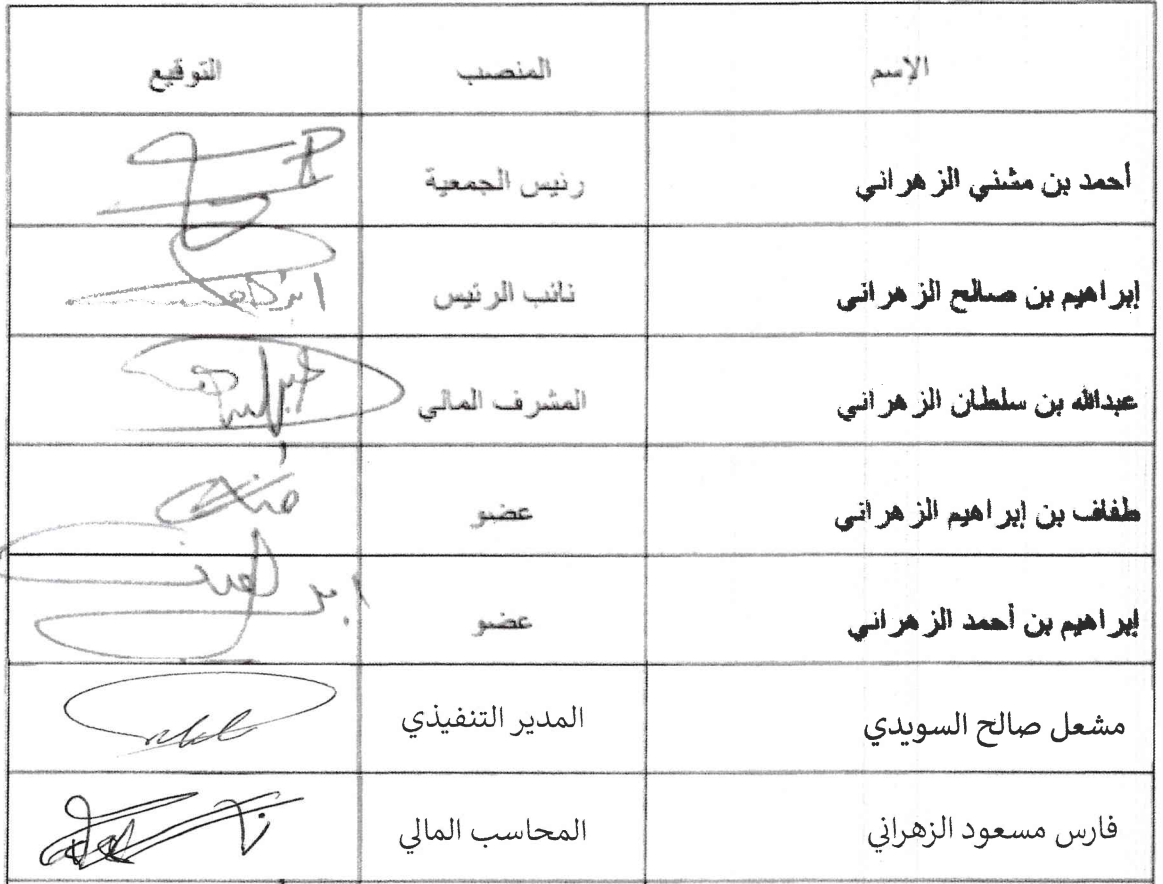 الإسم المنصب التوقيع
أحمد بن مشني الزهراني رئيس الجمعية
إبراهيم بن صالح الزهراني نائب الرئيس
عبدالله بن سلطان الزهراني المشرف المالي
طفاف بن إبراهيم الزهراني عضو
إبراهيم بن أحمد الزهراني عضو
مشعل صالح السويدي المدير التنفيذي
فارس مسعود الزهراني المحاسب المالي